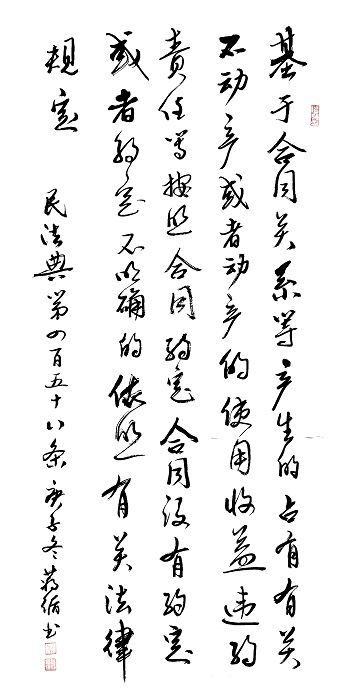 基于合同关系等产生的占有有关
不动产或者动产的使用收益违约
责任等按照合同约定合同没有约定
或者约定不明确的依照有关法律
规定 民法典第四百五十八条 庚子冬蒋循书